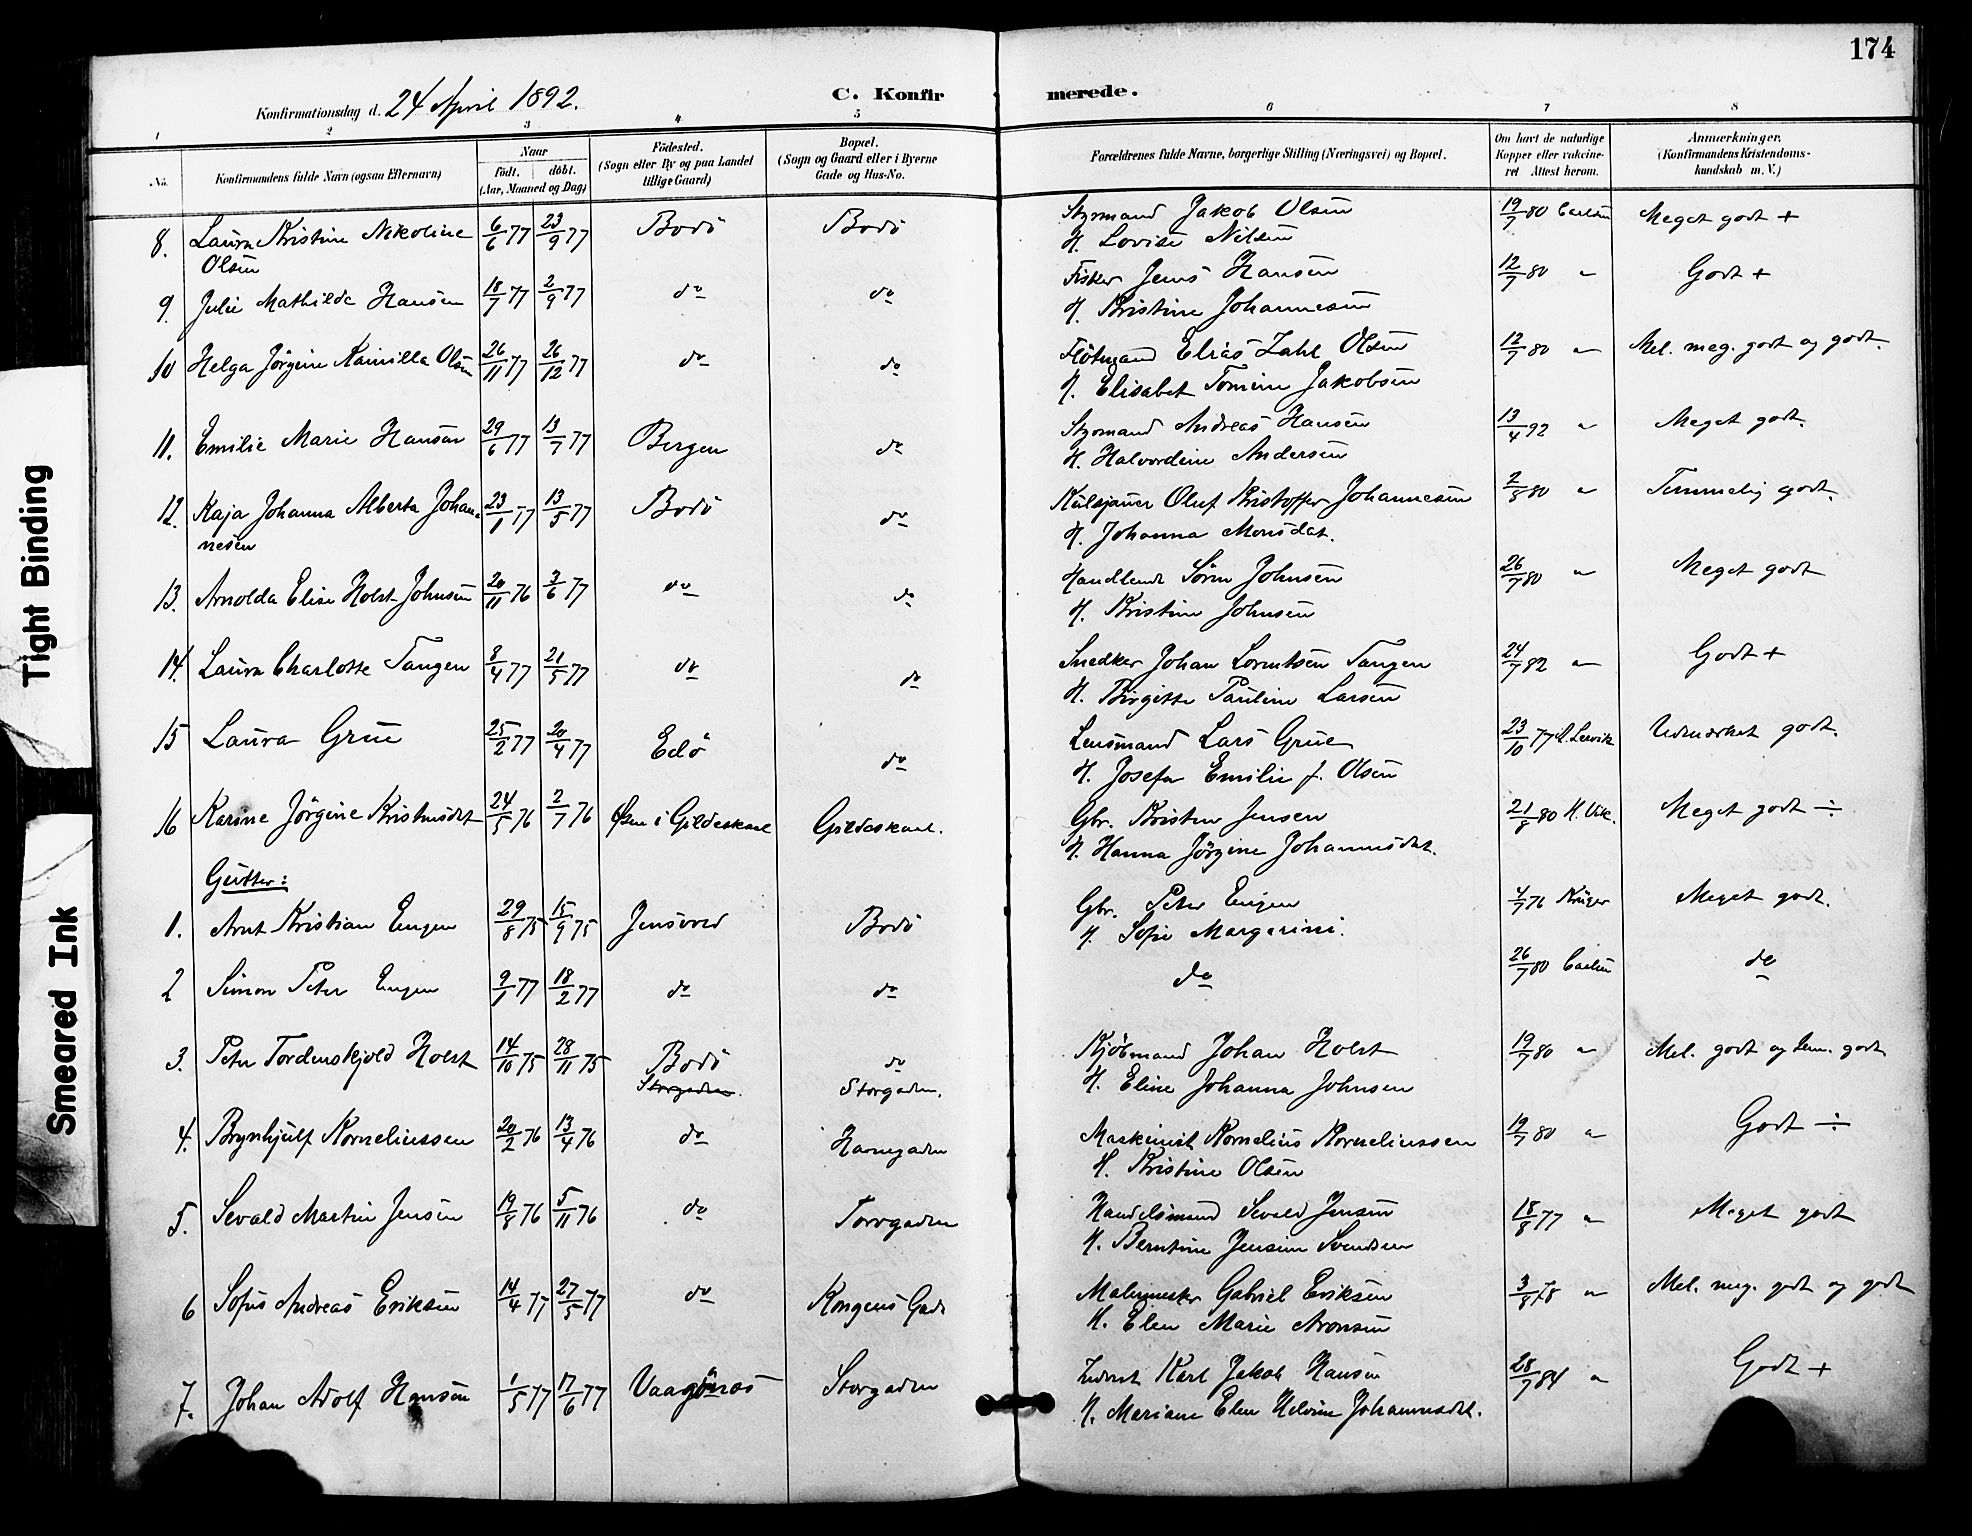 174
Konfirmationsdag d. 24 April 1892.
C. Konfir
merede.
1 2 3 4 5 6 7 8
No. Konfirmandens fulde Navn (ogsaa Efternavn) Naar født. døbt. (Aar, Maaned og Dag) Fødested. (Sogn eller By og paa Landet tillige Gaard) Bopæl. (Sogn og Gaard eller i Byerne Gade og Hus-No. Forældrenes fulde Navne, borgerlige Stilling (Næringsvei) og Bopæl. Om havt de naturlige Kopper eller vakcineret Attest herom. Anmærkninger. (Konfirmandens Kristendomskundskab m. V.)
8. Laura Kristine Nikoline 6/6 77 23/9 77 Bodö Bodö Styrmand Jakob Olsen 19/7 80 Carlsen Meget godt +
Olsen H. Lovise Nilsen
9. Julie Mathilde Hansen 18/7 77 2/9 77 do do Fisker Jens Hansen 12/7 80 " Godt +
H. Kristine Johannesen
10 Helga Jörgine Kamilla Olsen 26/11 77 26/12 77 do do Flötmand Elias Zahl Olsen 12/7 80 " Mel. meg. godt og godt.
H. Elisabet Tomine Jakobsen
11. Emilie Marie Hansen 29/6 77 13/7 77 Bergen do Styrmand Andreas Hansen 13/4 92 " Meget godt.
H. Halvordine Andersen
12. Kaja Johanna Alberta Johan- 23/1 77 13/5 77 Bodö do Oluf Kristoffer Johannesen 2/8 80 " Temmelig godt.
nesen H. Johanna Monsdat.
13. Arnolda Elise Holst Johnsen 20/11 76 3/6 77 do do Handlende Sören Johnsen 26/7 80 " Meget godt
H. Kristine Johnsen
14. Laura Charlotte Tangen 8/4 77 21/5 77 do do Snedker Johan Lorentsen Tangen 24/7 82 " Godt +
H. Birgitte Pauline Larsen
15 Laura Grue 25/2 77 20/4 77 Edö do Lensmand Lars Grue 23/10 77 Udmærket godt.
H. Josefa Emilie f. Olsen
16 Karine Jörgine Kristensdat 24/5 76 2/7 76 i Gildeskaal Gildeskaal. Gbr. Kristen Jensen 21/8 80 H. Vik. Meget godt ÷
H. Hanna Jörgine Johannesdat.
Gutter:
1. Arnt Kristian Engen 29/8 75 15/9 75 Jensvold Bodö Gbr. Peter Engen 4/7 76 Krüger Meget godt.
H. Sofie Margrini.
2 Simon Peter Engen 9/1 77 18/2 77 do do do 26/7 80 Carlsen do
3. Peter Tordenskjold Holst 14/10 75 28/11 75 Bodö do Kjöbmand Johan Holst 19/7 80 " Mel. godt og tem. godt
Storgaden. Storgaden. H. Eline Johanna Johnsen
4. Brynhjulf Korneliussen 20/2 76 13/4 76 do Havnegaden Maskinist Kornelius Korneliussen 19/7 80 " Godt ÷
H. Kristine Olsen
5. Sevald Martin Jensen 19/8 76 5/11 76 do Torvgaden Handelsmand Sevald Jensen 18/8 77 " Meget godt
H. Berntine Jensine Svendsen
6 Sofus Andreas Eriksen 14/4 77 27/5 77 do Kongens Gade Malermester Gabriel Eriksen 3/8 78 " Mel. meg. godt og godt
H. Elen Marie Aronsen
7. Johan Adolf Hansen 1/5 77 17/6 77 Vaagönes Storgaden Karl Jakob Hansen 28/7 84 " Godt +
H. Mariane Elen Johannesdat.
Tight Binding
Smeared Ink